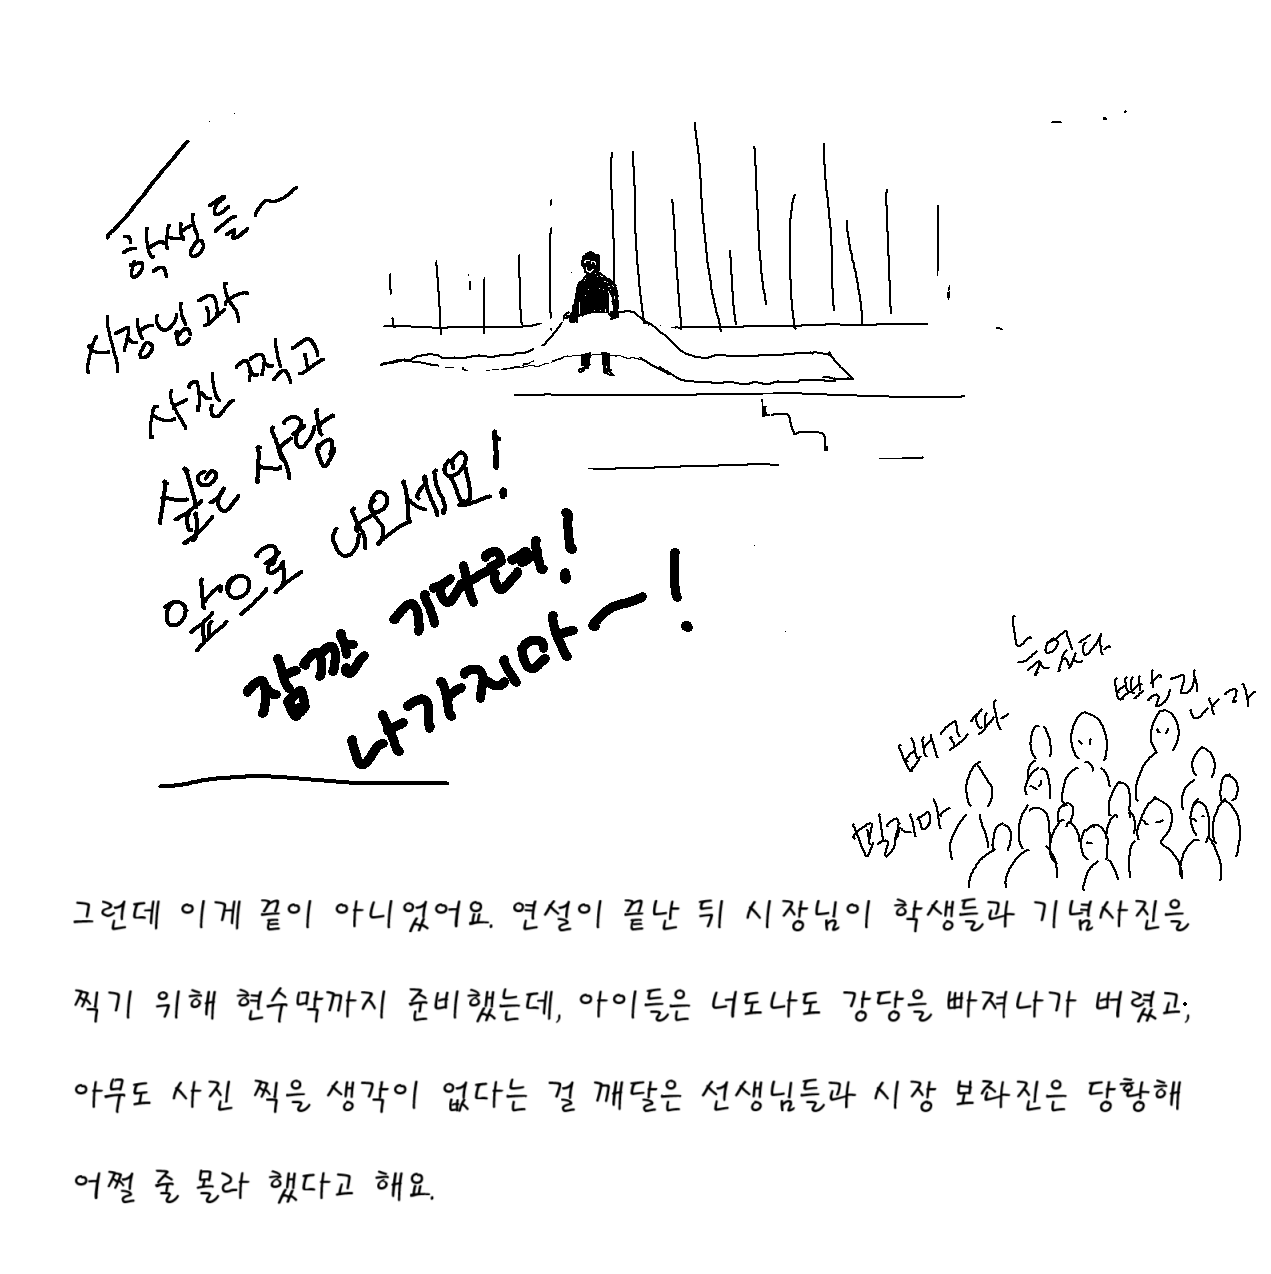 학생들~
시장님과
사진 찍고
싶은 사람
앞으로 나오세요!
잠깐 기다려!
나가지마~!
늦었다
빨리
나가
배고파
밀지마
그런데 이게 끝이 아니었어요. 연설이 끝난 뒤 시장님이 학생들과 기념사진을
찍기 위해 현수막까지 준비했는데, 아이들은 너도나도 강당을 빠져나가 버렸고;
아무도 사진 찍을 생각이 없다는 걸 깨달은 선생님들과 시장 보좌진은 당황해
어쩔 줄 몰라 했다고 해요.